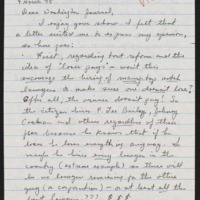 9 March 95
Dear Washington Journal,
I enjoy your show. I felt that
a letter suited me to express my opinion,
so here goes:
First, regarding tort reform and the
idea of "loser pays" won't this
encourage the hiring of many top notch
lawyers to make sure one doesn't lose?
After all, the winner doesn't pay! In
the citizen above F. Lee Bailey, Johnny
Cochran and others regardless of their
fees because he knows that if he
doesn't lose everything anyway. So
maybe he hires every lawyer in the
country (extreme example) so there will
be no lawyers remaining for the other
guy (a corporation) - or at least all the
best lawyers ???